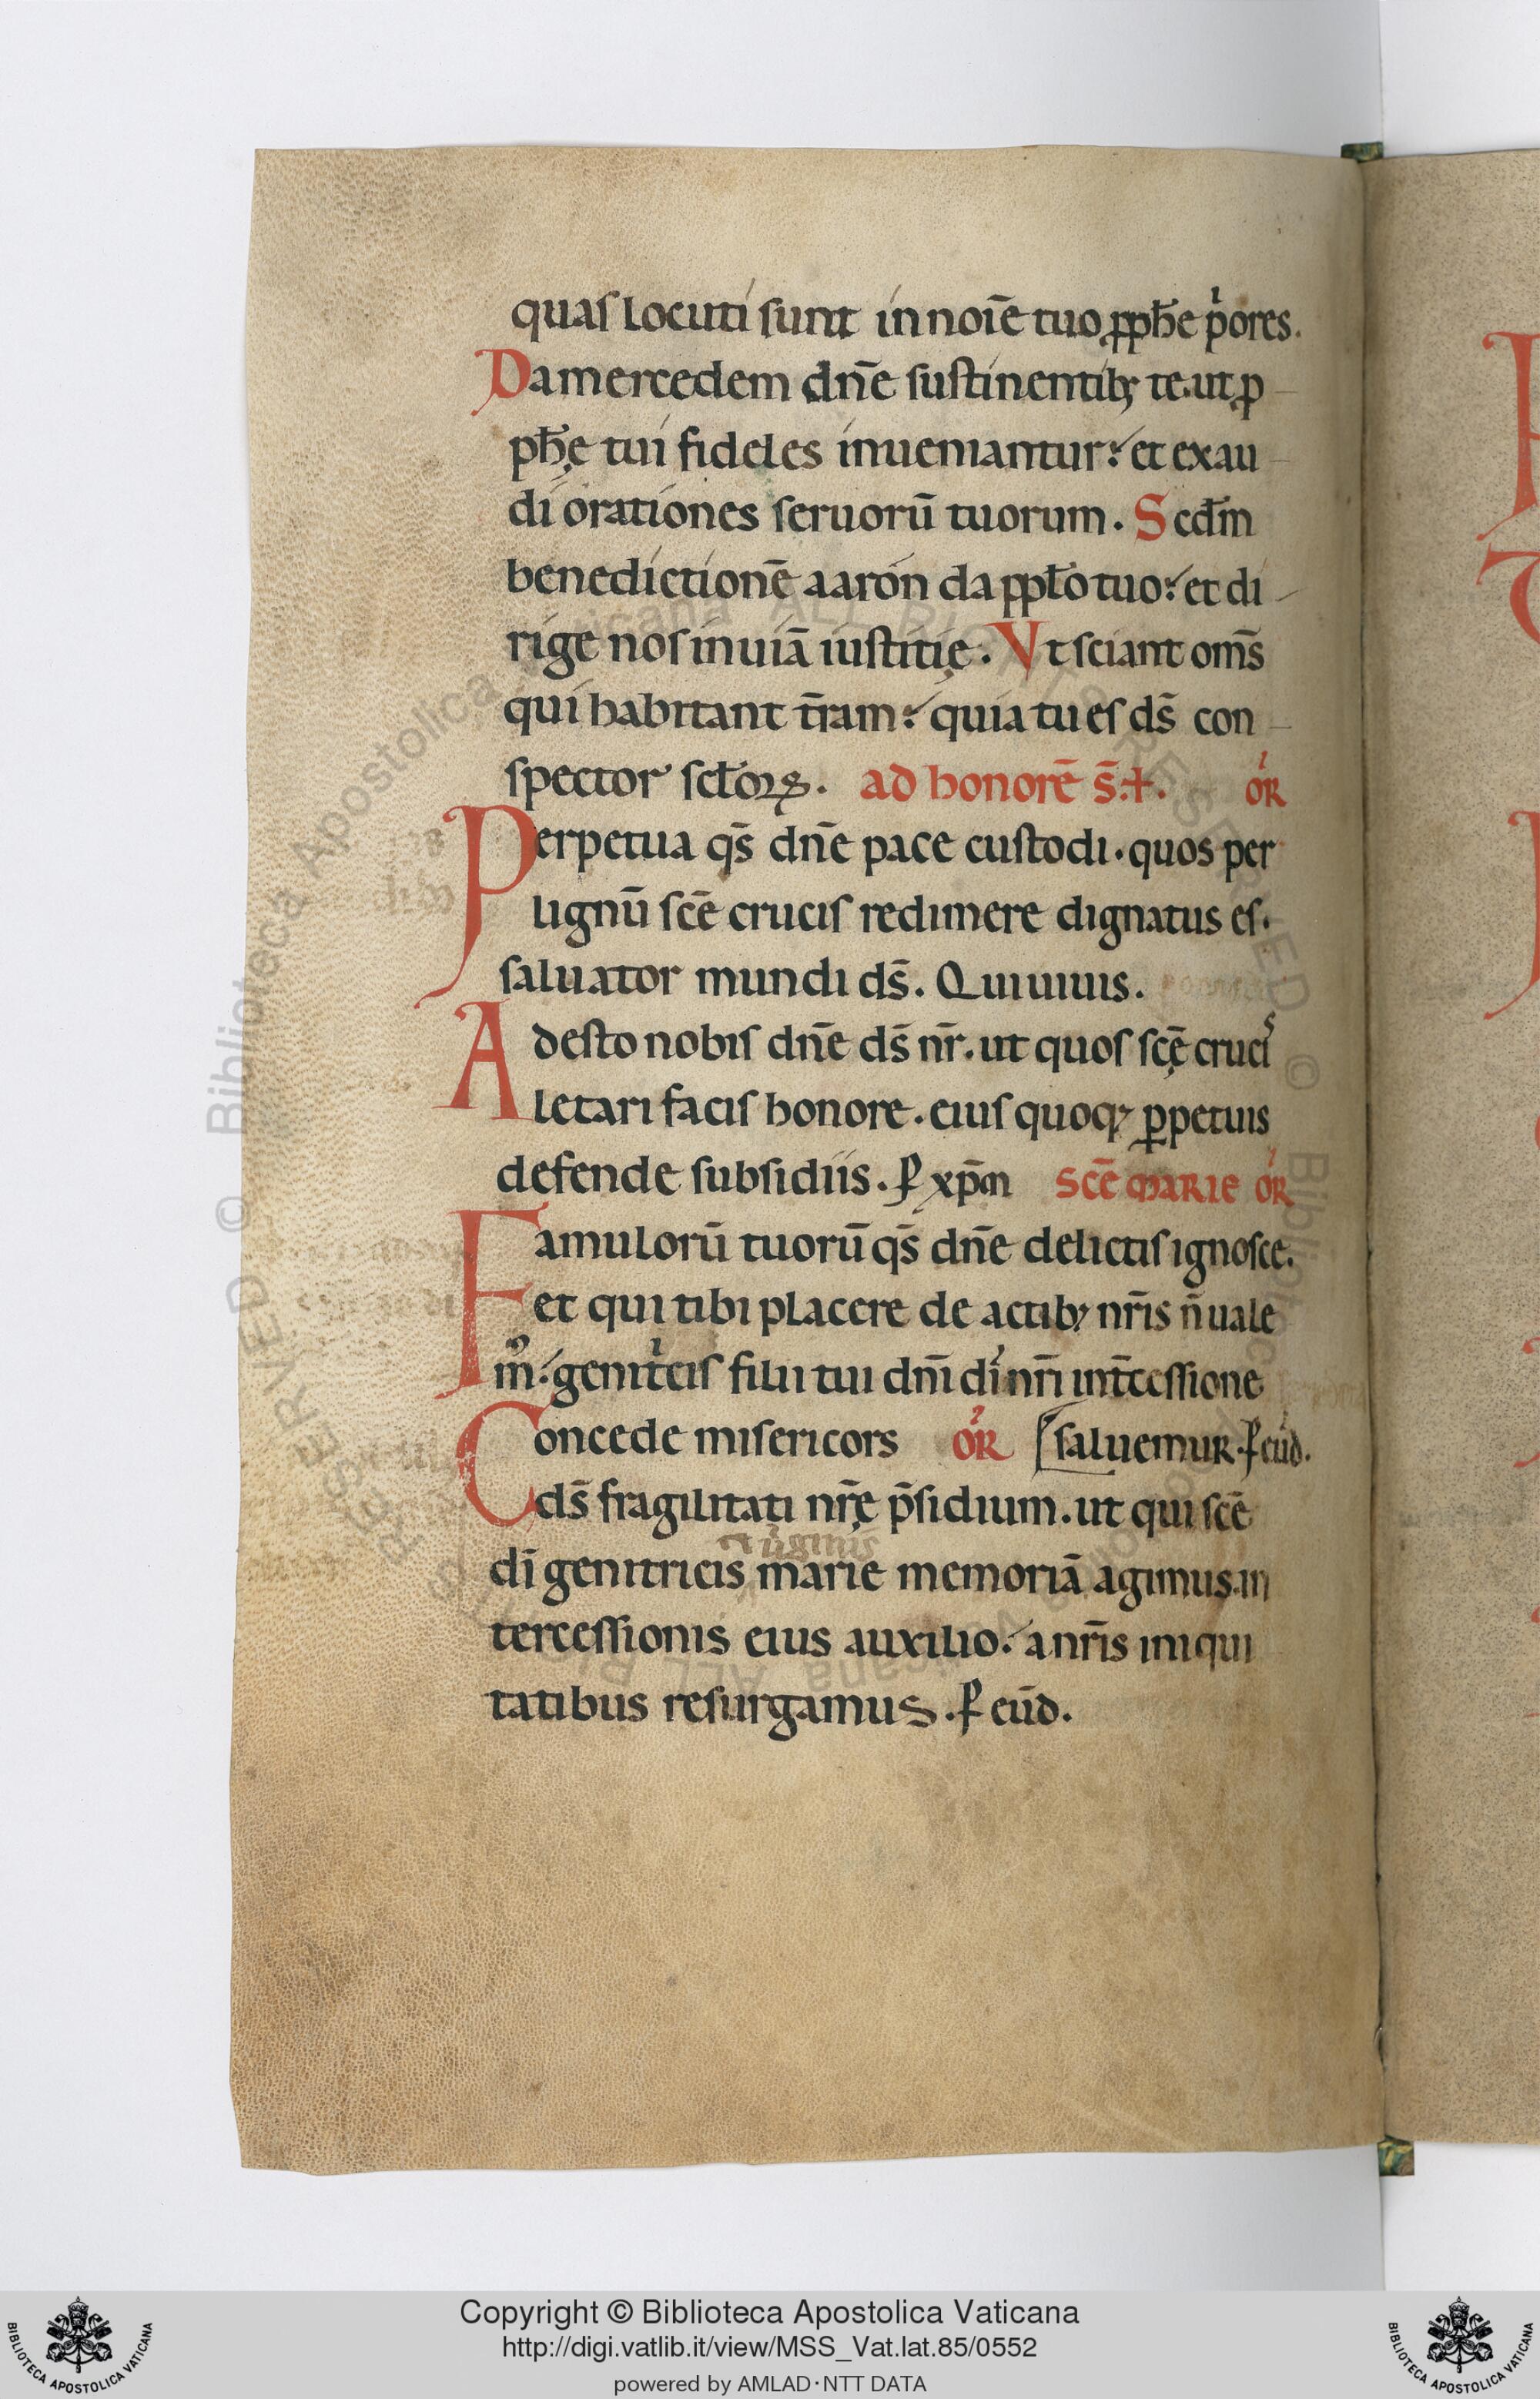 quas locuti sunt in noı̄e tuo ꝓph̄e pͥores.
Da mercedem dn̄e sustinentibꝫ te. ut ꝓ
ph̄ę tui fideles inueniantur: et exau
di orationes seruorū tuorum. Scd̄m
benedictionē aaron da ppl̄o tuo: et di
rige nos in uiā iustitię. Vt sciant om̄s
qui habitant t̄ram: quia tu es ds̄ con
spector scl̄oꝝ. ad honorē s̄. ✝. or̄
Perpetua qs̄ dn̄e pace custodi. quos per
lignū scē crucis redimere dignatus es.
saluator mundi ds̄. Qui uiuis.
Adesto nobis dn̄e ds̄ nr̄. ut quos scę̄ crucis
letari facis honore. eius quoqꝫ ꝑpetuis
defende subsidiis. P xp̄m scē marie or̄
Famulorū tuorū qs̄ dn̄e delictis ignosce.
et qui tibi placere de actibꝫ nr̄is n̄ uale
mͦ: genitͥcis filii tui dn̄i di nr̄i int̄cessione
Concede misericors or̄ saluemur. P eūd.
ds̄ fragilitati nr̄ę p̄sidium. ut qui scē
et uͥginis
dı̄ genitricis marie memoriā agimus. in
tercessionis eius auxilio: a nr̄is iniqui
tatibus resurgamus. P eūd.
Copyright © Biblioteca Apostolica Vaticana
http://digi.vatlib.it/view/MSS_Vat.lat.85/0552
powered by AMLAD·NTT DATA
BIBLIOTECA APOSTOLICA VATICANA
BIBLIOTECA APOSTOLICA VATICANA